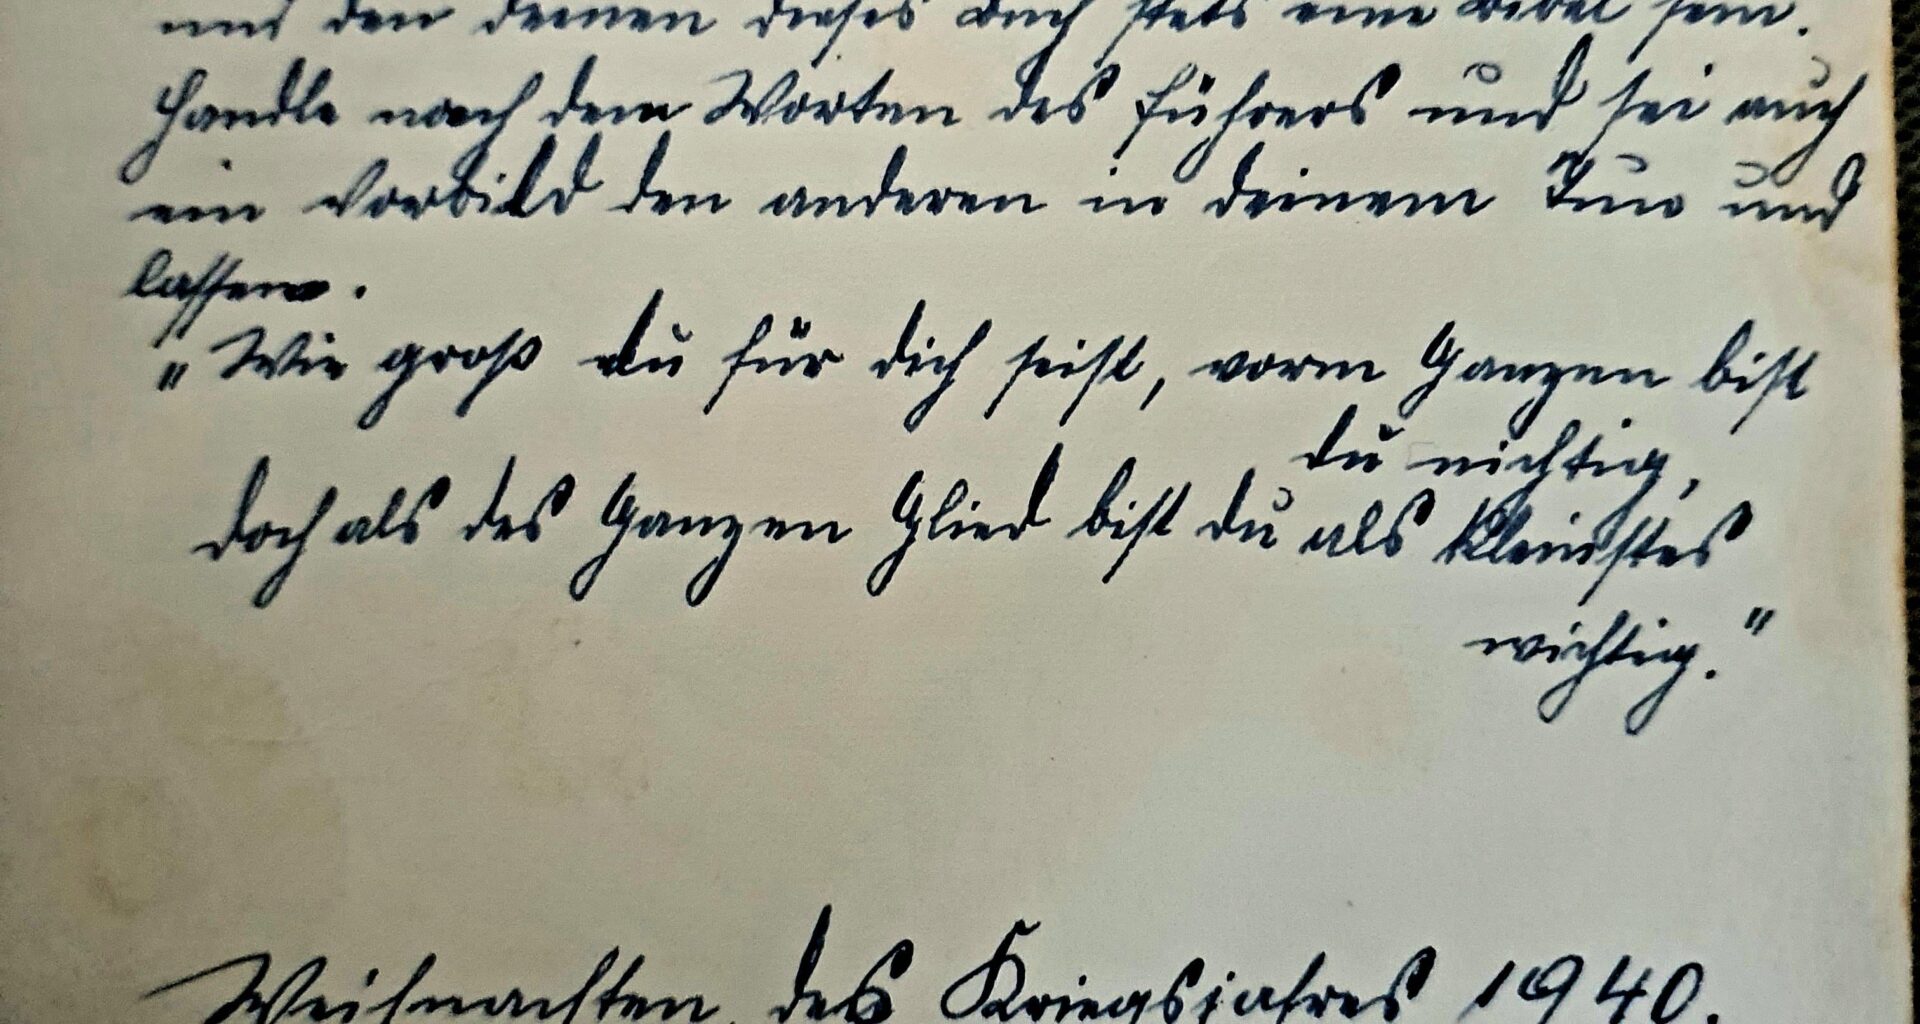 und den deinen dieses Buch stets eine Bibel sein.
Handle nach dem Worten des Führers und sei auch
ein Vorbild den anderen in deinem Tun und
lassen.
"Wie groß du für dich seist, vorm Ganzen bist
du nichtig,
doch als des Ganzen Glied bist du als kleinstes
wichtig."
Weihnachten des Kriegsjahres 1940.